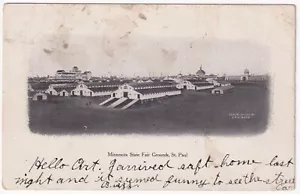 Minnesota State Fair Grounds, St. Paul
Hello Art. Arrived saft home last
night and it seemed funny to see the street